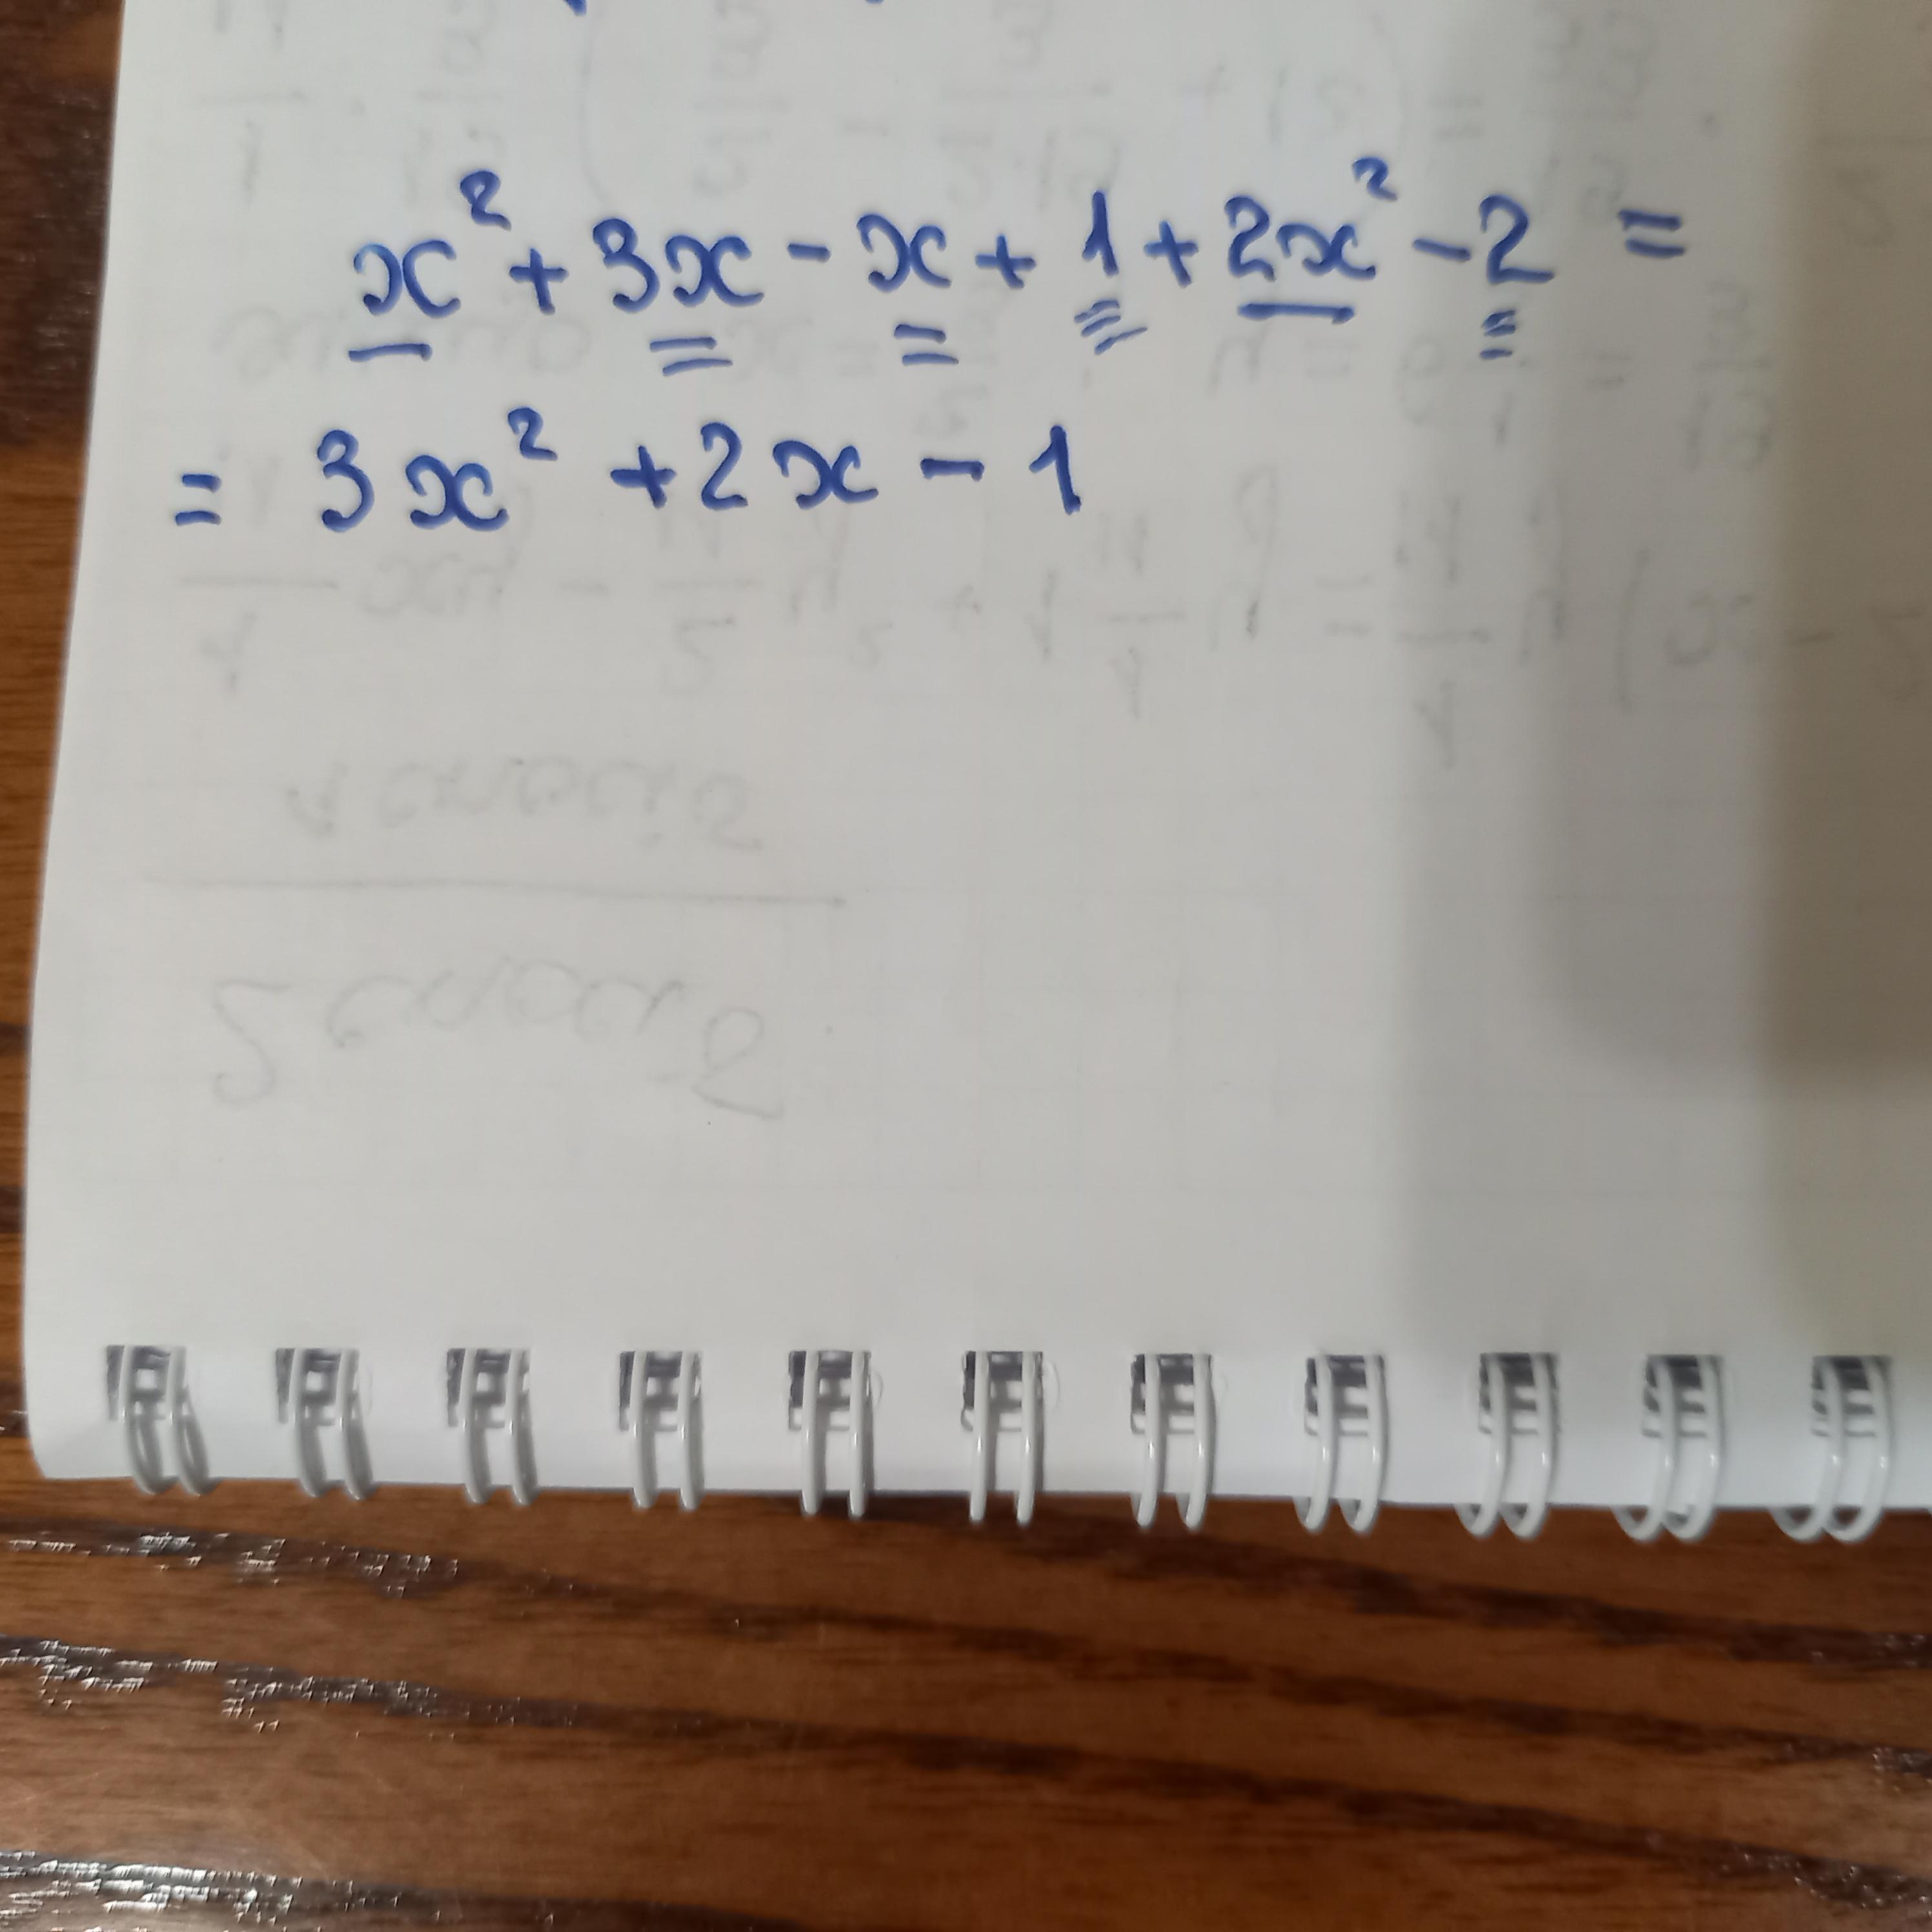 x² + 3x - x + 1 + 2x² - 2 =
= 3x² + 2x - 1